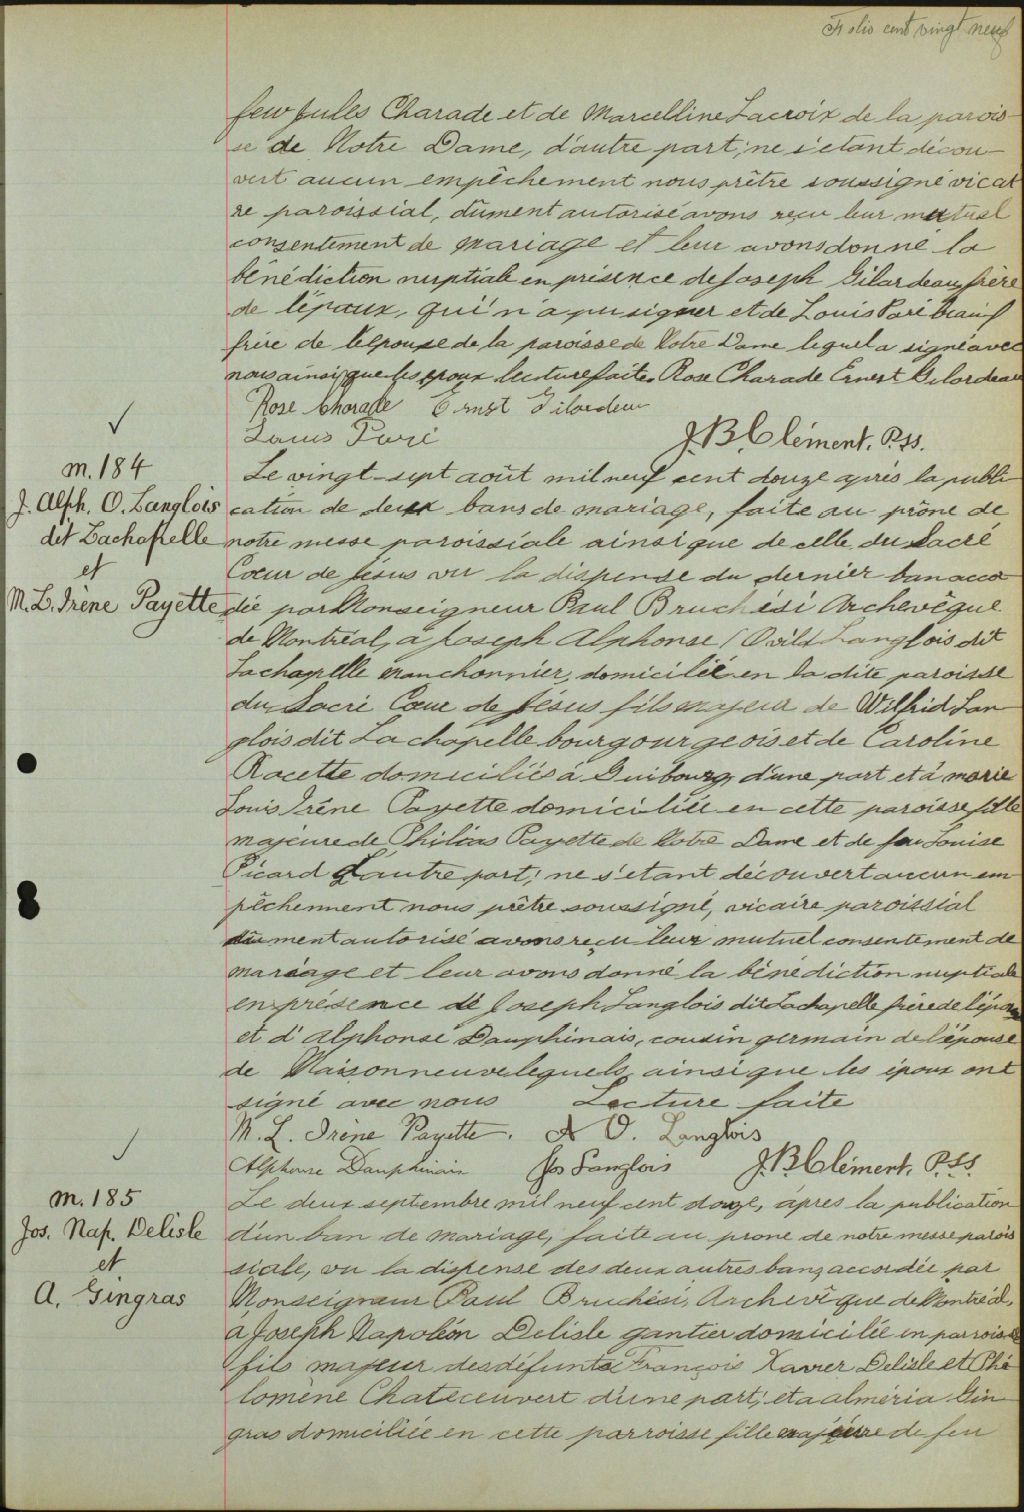 Folio cent vingt neuf
feu Jules Charade et de Marcelline Lacroix de la parois-
se de Notre Dame, d'autre part; ne s'étant décou-
vert aucun empêchement nous prêtre soussigné vicai
re paroissial, dûment autorisé avons reçu leur mutuel
consentement de mariage et leur avons donné la
bénédiction nuptiale en présence de Joseph Gilardeau frère
de l'époux, qui n'a pu signer et de Louis Paré
frère de l'épouse de la paroisse de Notre Dame lequel a signé avec
nous ainsi que les époux lecture faite. Rose Charade Ernest Gilardeau
Rose Charade Ernst Gilardeau
Louis Paré
J.B. Clément. P.SS.
m. 184
J. Alph. O. Langlois
dit Lachapelle
et
M. L. Irène Payette
Le vingt-sept août mil neuf cent douze après la publi-
cation de deux bans de mariage, faite au prône de
notre messe paroissiale ainsi que de celle du Sacré
Cœur de Jésus vu la dispense du dernier ban accor
dée par Monseigneur Paul Bruchési Archevêque
de Montréal, à Joseph Alphonse Ovila Langlois dit
Lachapelle manchonnier, domicilié en la dite paroisse
du Sacré Cœur de Jésus fils majeur de Wilfrid Lan
glois dit Lachapelle bourgourgeois et de Caroline
Racette domiciliés à Guibourg, d'une part et à marie
Louis Irène Payette domiciliée en cette paroisse fille
majeure de Philéas Payette de Notre Dame et de feu Louise
Picard d'autre part; ne s'étant découvert aucun em
pêchenment nous prêtre soussigné, vicaire paroissial
dûment autorisé avons reçu leur mutuel consentement de
mariage et leur avons donné la bénédiction nuptiale
en présence de Joseph Langlois dit Lachapelle frère de l'époux
et d'Alphonse Dauphinais, cousin germain de l'épouse
de Maisonneuve lequels ainsi que les époux ont
signé avec nous Lecture faite
M. L. Irène Payette. A O. Langlois
Alphonse Dauphinais Jos Langlois J.B. Clément. P.SS.
m. 185
Jos. Nap. Delisle
et
A. Gingras
Le deux septembre mil neuf cent douze, âpres la publication
d'un ban de mariage, faite au prone de notre messe parois
siale, vu la dispense des deux autres bans accordée par
Monseigneur Paul Bruchési, Archevêque de Montréal,
à Joseph Napoléon Delisle gantier domicilée en parroisse
fils majeur des défunts François Xavier Delisle et Phi
lomène Chateauvert d'une part; et a alméria Gin
gras domiciliée en cette parroisse fille majeure de feu